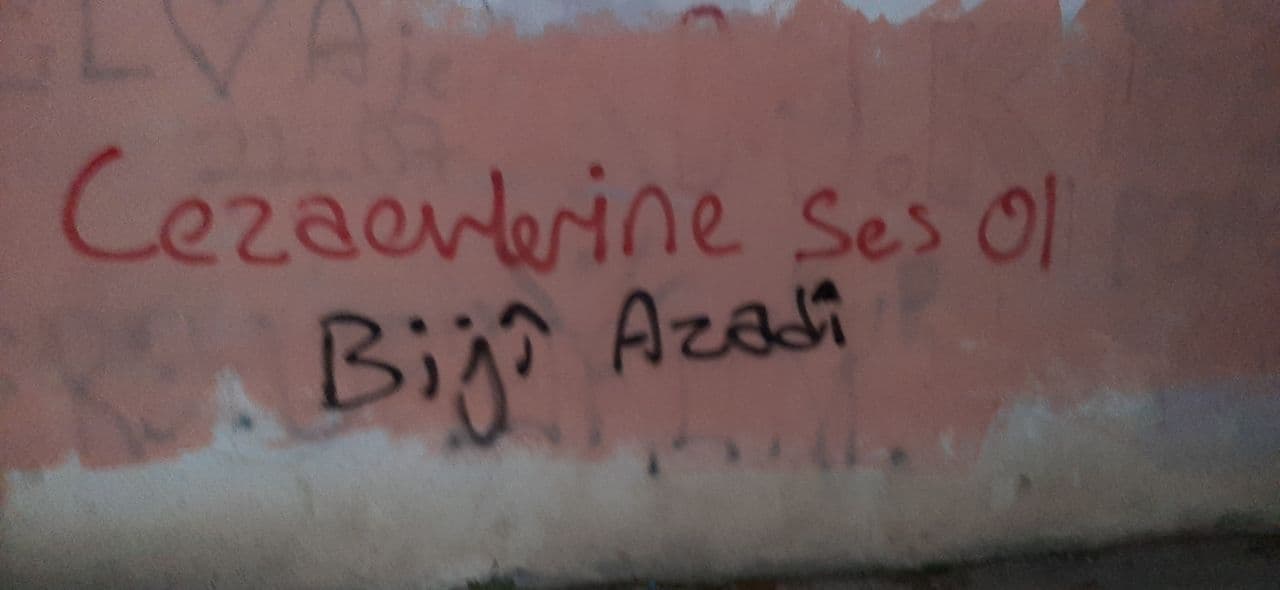 L ♡ Aje
Cezaevlerine Ses Ol
Bijî Azadî